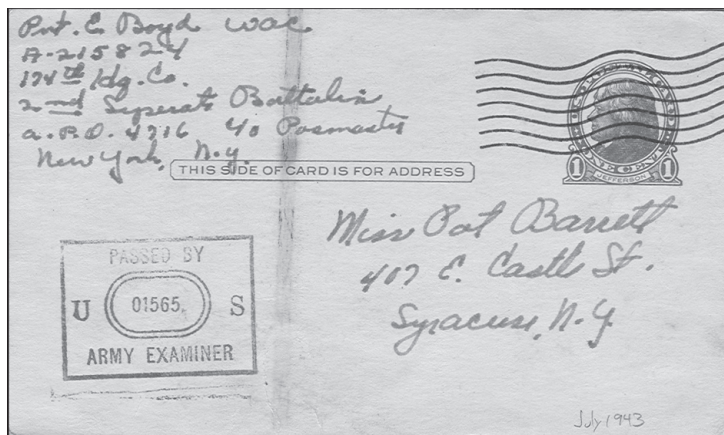 Pvt. E. Boyd WAC
A-215824
174th Hq. Co.
2nd Seperate Battalion
A.P.O. 4716 c/o Posmaster
New York, N.Y.
THIS SIDE OF CARD IS FOR ADDRESS
1 JEFFERSON 1
Miss Pat Barrett
407 E. Castle St.
Syracuse, N.Y.
PASSED BY
U 01565 S
ARMY EXAMINER
July 1943